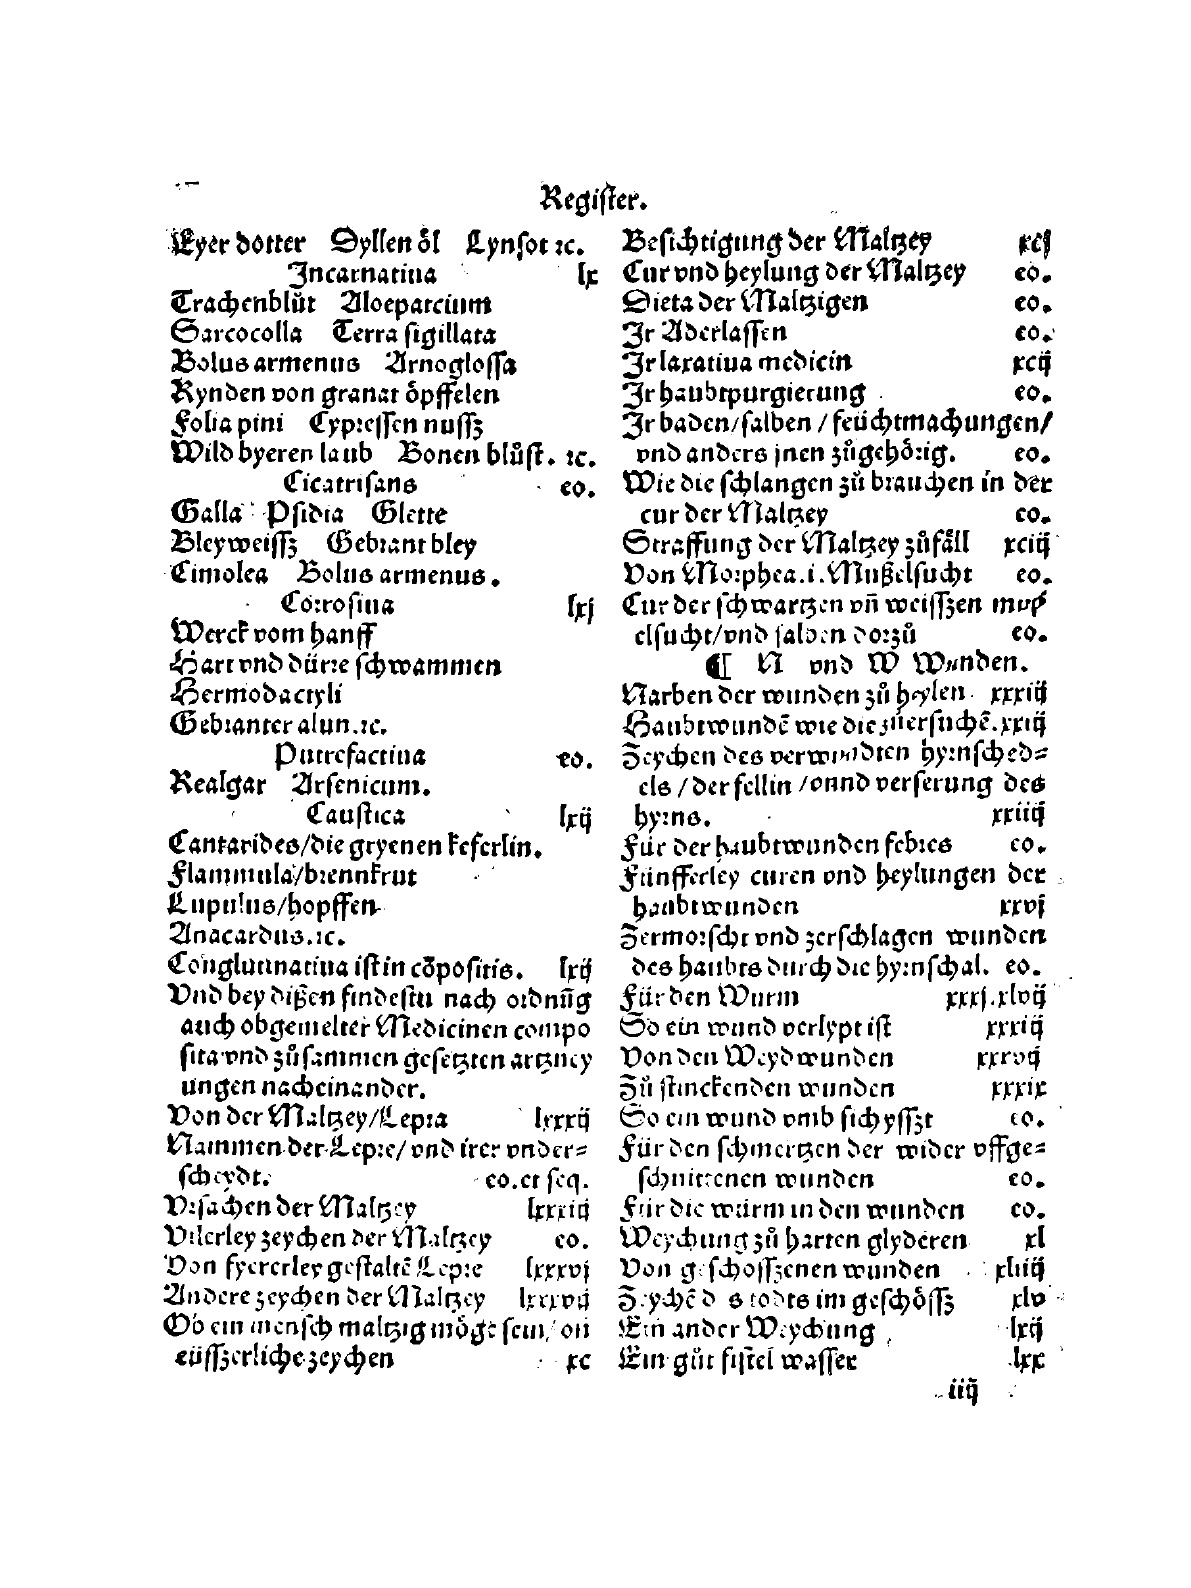 Register.
Eyer dotter Dyllen oͤl Lynsot ꝛc.
Incarnatiua lx
Trachenbluͦt Aloeparcium
Sarcocolla Terra sigillata
Bolus armenus Arnoglossa
Rynden von granat oͤpffelen
Folia pini Cypressen nussz
Wild byeren laub Bonen bluͦst. ꝛc.
Cicatrisans eo.
Galla Psidia Glette
Bleyweissz Gebrant bley
Cimolea Bolus armenus.
Corrosiua lxj
Werck vom hanff
Hart vnd dürre schwammen
Hermodactyli
Gebranter alun.ꝛc.
Putrefactiua eo.
Realgar Arsenicum.
Caustica lxij
Cantarides/die gryenen keferlin.
Flammula/brennkrut
Lupulus/hopffen
Anacardus.ꝛc.
Conglutinatiua ist in cōpositis. lxij
Vnd bey dißen findestu nach ordnūg
auch obgemelter Medicinen compo
sita vnd zuͦsammen gesetzten artzney
ungen nacheinander.
Von der Maltzey/Lepra lxxxij
Nammen der Lepre/vnd irer vnder⸗
scheydt. eo.et seq.
Vrsachen der Maltzey lxxxiij
Vilerley zeychen der Maltzey eo.
Von fyererley gestaltē Lepre lxxxvj
Andere zeychen der Maltzey lxxxvij
Ob ein mensch maltzig moͤge sein/on
eüsszerliche zeychen xc
Besichtigung der Maltzey xcj
Cur vnd heylung der Maltzey eo.
Dieta der Maltzigen eo.
Ir Aderlassen eo.
Ir laxatiua medicin xcij
Ir haubtpurgierung eo.
Ir baden/salben/feüchtmachungen/
vnd anders jnen zuͦgehoͤrig. eo.
Wie die schlangen zuͦ brauchen in der
cur der Maltzey eo.
Straffung der Maltzey zuͦfaͤll xciij
Von Morphea.i.Mußelsucht eo.
Cur der schwartzen vn̄ weisszen
elsucht/vnd salben dorzuͦ eo.
¶ N vnd W Wunden.
Narben der wunden zuͦ heylen xxxiij
Haubtwundē wie die zuersuchē. xxiij
Zeychen des verwundten hyrnsched⸗
els/der fellin/vnnd verserung des
hyrns. xxiiij
Für der haubtwunden febres eo.
Fünfferley curen vnd heylungen der
haubtwunden xxvj
Zermorscht vnd zerschlagen wunden
des haubts durch die hyrnschal. eo.
Für den Wurm xxxj.xlvij
So ein wund verlypt ist xxxiij
Von den Weydwunden xxxvij
Zuͦ stinckenden wunden xxxix
So ein wund vmb sich yssz​t eo.
Für den schmertzen der wider vffge⸗
schnittenen wunden eo.
Für die würm in den wunden eo.
Weychung zuͦ harten glyderen xl
Von geschosszenen wunden xliij
Zeychē des todts im geschoͤssz xlv
Ein ander Weychung lxij
Ein guͦt fistel wasser lxx
iiij